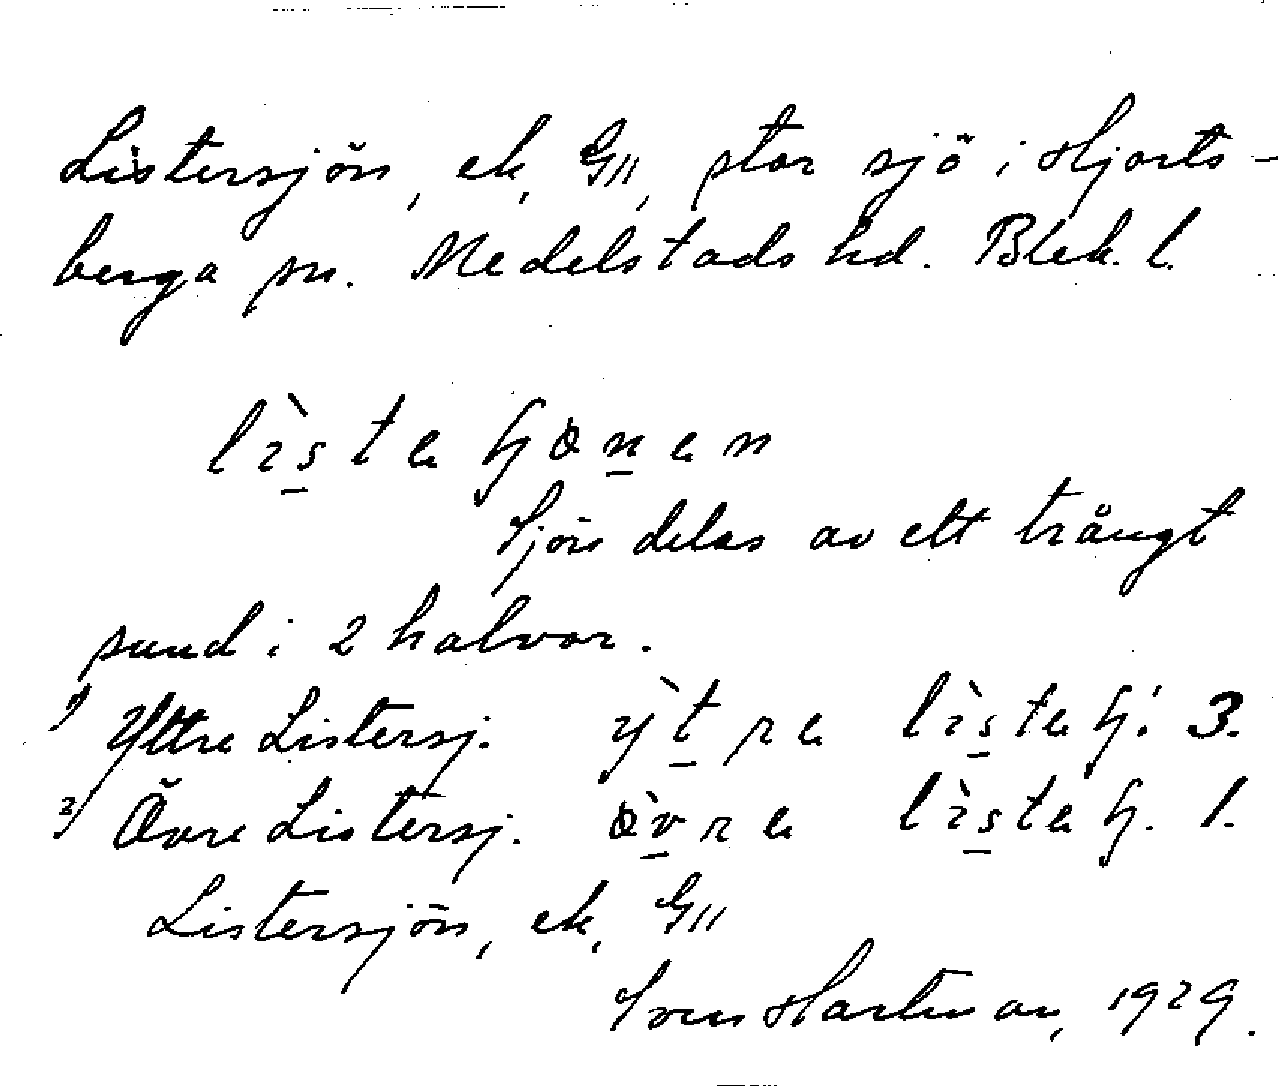 Listersjön, ek, G11, stor sjö i Hjorts-
berga sn. Medelstads hd. Blek. l.
Sjön delas av ett trångt
sund i 2 halvor.
1) Yttre Listersj.
2) Övre Listersj.
Listersjön, ek, G11
Sven Hartman, 1929.